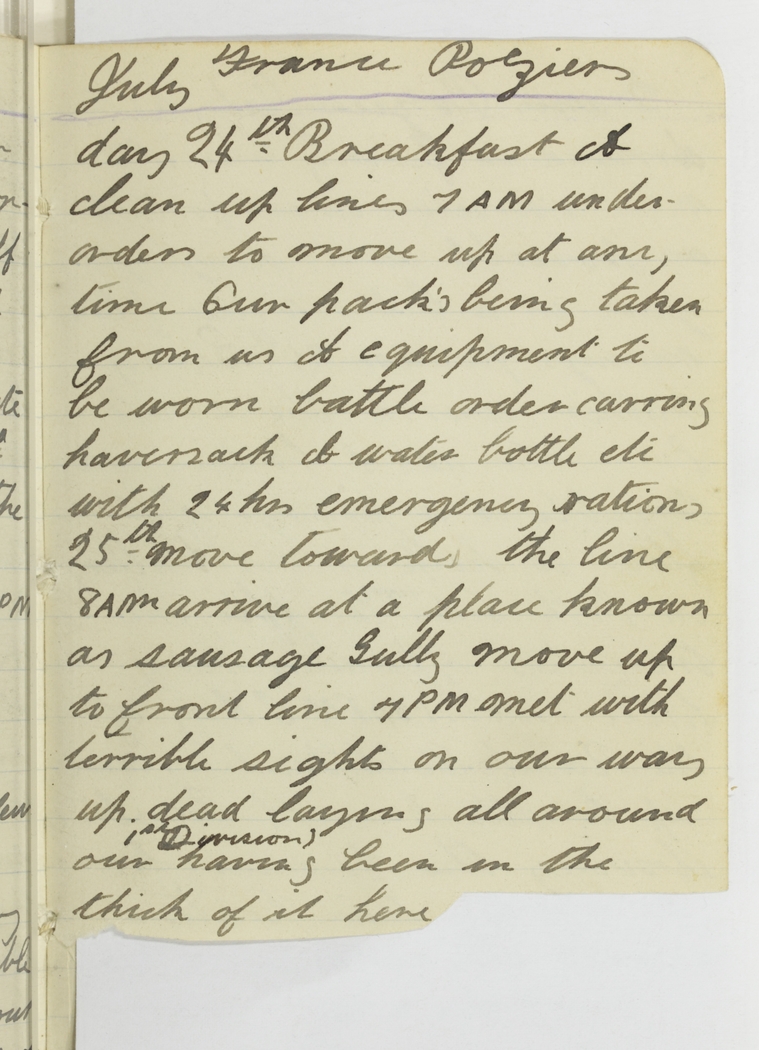 July France Poziers
day 24th Breakfast &
clean up lines 7 AM under
orders to move up at any
time Our pack's being taken
from us & equipment to
be worn battle order carring
haversack & water bottle etc
with 24 hrs emergency rations
25th move towards the line
8AM arrive at a place known
as sausage Gully move up
to front line 7PM met with
terrible sights on our way
up. dead laying all around
1st Division)
our having been in the
thick of it here